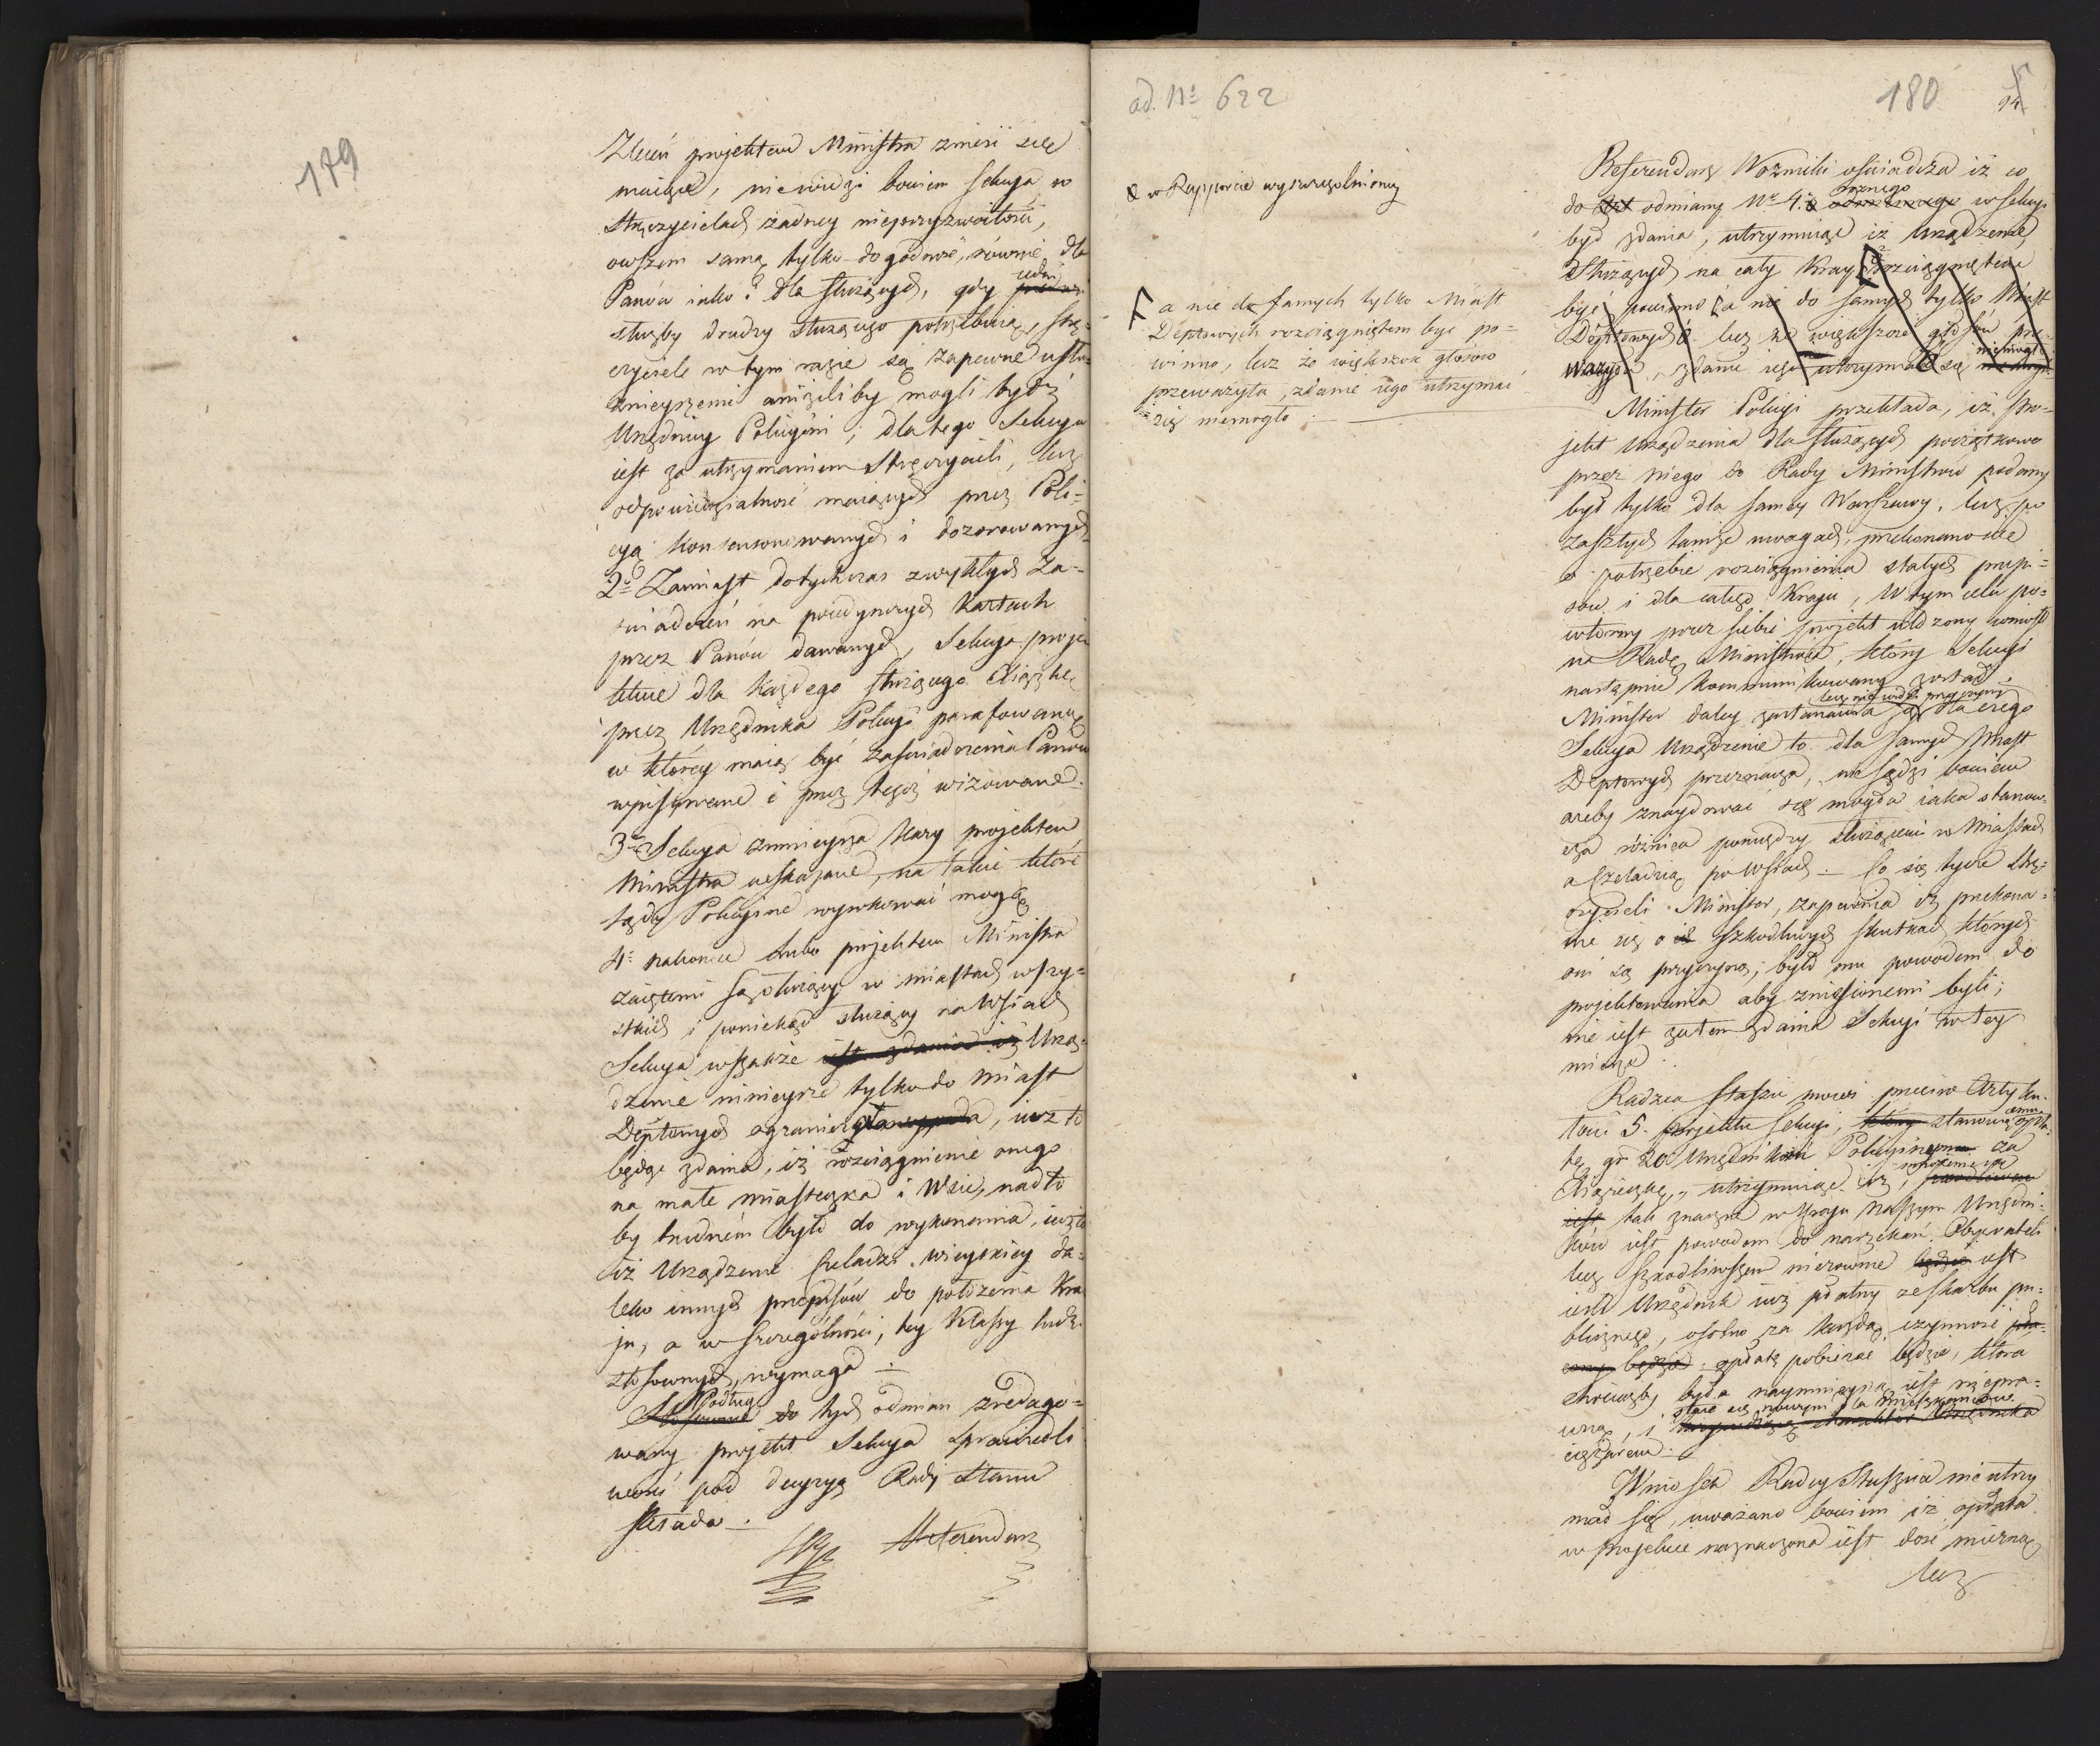 179
Zleceń projektem Ministra znieść się
maiące, nie widzi bowiem Sekcya w
Stręczycielach żadney nieprzyzwoitości,
owszem samą tylko dogodność, równie dla
Panów iako i dla służących, gdy
służby drudzy służącego potrzebuią, Strę=
czyciele w tym razie są zapewne usłu=
żnieyszemi aniżeliby mogli bydź
Urzędnicy Policyini; dla tego Sekcya
iest za utrzymaniem Stręczycieli, lecz
odpowiedzialność maiących przez Poli=
cyą konsensonowanych i dozorowanych
2º Zamiast dotychczas zwykłych Za=
świadczeń na poiedynczych Kartach
przez Panów dawanych, Sekcya proje
ktuie dla każdego służącego Xiążkę
przez Urzędnika Policyi parafowaną
w którey maią być zaświadczenia Panów
wpisywane i przez tegoż wizowane.
3º Sekcya zmnieysza kary projektem
Ministra wskazane, na takie które
Sądy Policyine wyrokować mogą
4º nakoniec lubo projektem Ministra
zaiętemi są służący w miastach wszy=
stkich i poniekąd służący na Wsiach
Sekcya wszakże iest zdania iż Urzą=
dzenie ninieysze tylko do Miast
Deptowych ogranicza, iuż to
będąc zdania, iż rozciągnienie onego
na małe miasteczka i Wsie, nadto
by trudném było do wykonania, iuż to
iż Urządzenie Czeladzi wieyskiey da=
leko innych przepisów do położenia Kra
ju, a w szczególności, tey Klassy ludzi
stosownych, wymaga.
Podług
Stosownie do tych odmian zredago=
wany projekt Sekcya Sprawiedli
wości pod decyzyą Rady Stanu
składa.
Referendarz
ad. Nº 622
180
94
& w Rapporcie wyszczególnioney
F a nie do samych tylko Miast
Deptowych rozciągniętem być po=
winno, lecz że większość głosów
przeważyła, zdanie iego utrzymać
się niemogło.
Referendarz Woźnicki oświadcza iż co
do odmiany Nº 4º w Sekcyi
był zdania, utrzymuiąc iż Urządzenie
Służących na cały Kray rozciągniętem
być powinno, a nie do samych tylko Miast
Deptowych lecz że większość głosów prze
ważyła, zdanie iego utrzymać się niemogło
Minister Policyi przekłada, iż pro=
jekt Urządzenia dla Służących początkowo
przez niego do Rady Ministrów podany
był tylko dla samey Warszawy, lecz po
zaszłych tamże uwagach, przekonano się
o potrzebie rozciągnienia stałych przepi=
sów i dla całego Kraju, W tym celu po=
wtórny przez siebie projekt ułożony wniósł
na Radę Ministrów, który Sekcyi
następnie kommunikowany został.
lecz nie widzi przyczyny
Minister daley zastanawia się dla czego
Sekcya Urządzenie to dla samych Miast
Deptowych przeznacza, nie sądzi bowiem
ażeby znaydować się mogła iaka stanow=
cza różnica pomiędzy służącemi w Miastach
a Czeladzią po Wsiach. Co się tycze Strę=
czycieli Minister, zapewnia iż przekona=
nie się o szkodliwych skutkach których
oni są przyczyną, było mu powodem do
projektowania aby zniesionemi byli;
nie iest zatem zdania Sekcyi w tey
mierze.
Radzca Staszic mówi przeciw Artyku=
łowi 5. projektu Sekcyi, stanowiącemu opła=
tę gr 20 Urzędnikowi Policyinemu za
Xiążeczkę, utrzymuiąc iż,
iest tak znaczne w kraju naszym Urzędni=
ków iest powodem do narzekań Obywateli
lecz szkodliwszem nierównie iest
ieśli Urzędnik iuż płatny ze Skarbu pu=
blicznego, osobno za każdą czynność
opłatę pobierać będzie, która
chociażby była naymnieysza iest niepra=
wną, i stanie się nowym dla mieszkańców
ciężarem.
Wniosek Radcy Staszica nie utrzy
mał się, uważano bowiem iż opłata
w projekcie naznaczona iest dość mierną
lecz